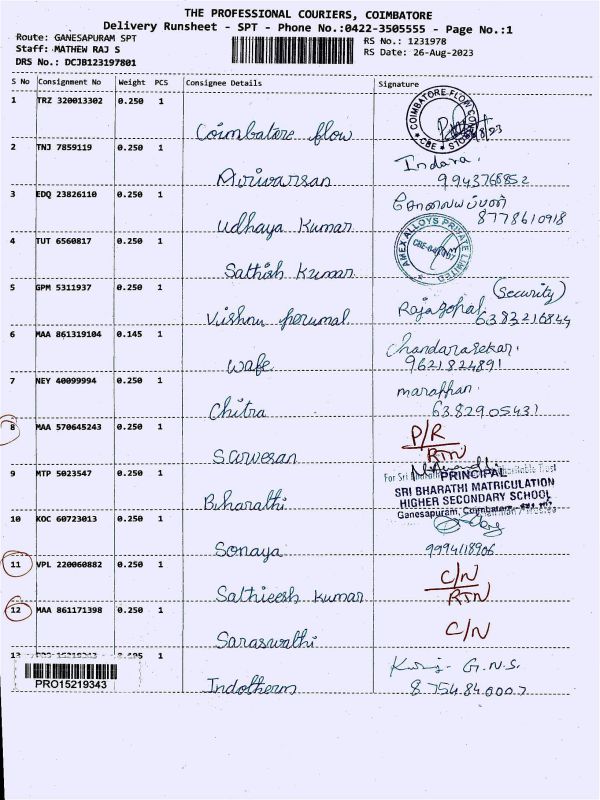 THE PROFESSIONAL COURIERS, COIMBATORE
Delivery Runsheet - SPT - Phone No.:0422-3505555 - Page No.:1
Route: GANESAPURAM SPT
RS No.: 1231978
Staff: MATHEW RAJ S
RS Date: 26-Aug-2023
DRS No.: DCJB123197801
S No Consignment No Weight PCS Consignee Details Signature
1 TRZ 320013302 0.250 1
COIMBATORE FLOW CON
STORES
CBE
Coimbatore flow
2 TNJ 7859119 0.250 1
Indara.
Ariwarsan 9943768852
3 EDQ 23826110 0.250 1
Udhaya Kumar 8778610918
4 TUT 6560817 0.250 1
AMEX ALLOYS PRIVATE LIMITED
Sathish Kumar
5 GPM 5311937 0.250 1
Rajagopal (Security)
Vishnu perumal 6383216844
6 MAA 861319104 0.145 1
Chandarasekar.
wafe 9621824891
7 NEY 40099994 0.250 1
Chitra 6382905431
8 MAA 570645243 0.250 1
P/R
RTN
Sarwesan
9 MTP 5023547 0.250 1
For Sri Bharathi Charitable Trust
PRINCIPAL
SRI BHARATHI MATRICULATION
HIGHER SECONDARY SCHOOL
Ganesapuram, Coimbatore
Bharathi
10 KOC 60723013 0.250 1
Sonaya 9994118906
11 VPL 220060882 0.250 1
C/N
RTN
Sathieesh kumar
12 MAA 861171398 0.250 1
C/N
Saraswathi
13 PRO 15219343 0.195 1
PRO15219343
G.N.S.
Indotherm 8754840007